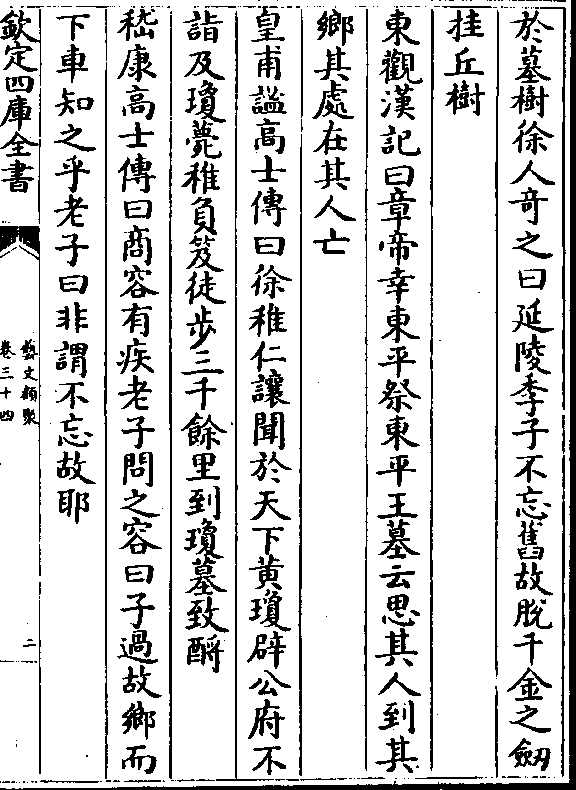 於墓樹徐人竒之曰延陵季子不忘舊故脫千金之劒
挂丘樹
東觀漢記曰章帝幸東平祭東平王墓云思其人到其
鄉其處在其人亡
皇甫謐高士傳曰徐稚仁讓聞於天下黄瓊辟公府不
詣及瓊薨稚負笈徒步三千餘里到瓊墓致酹
嵇康高士傳曰商容有疾老子問之容曰子過故鄉而
下車知之乎老子曰非謂不忘故耶
欽定四庫全書
藝文類聚
卷三十四
二